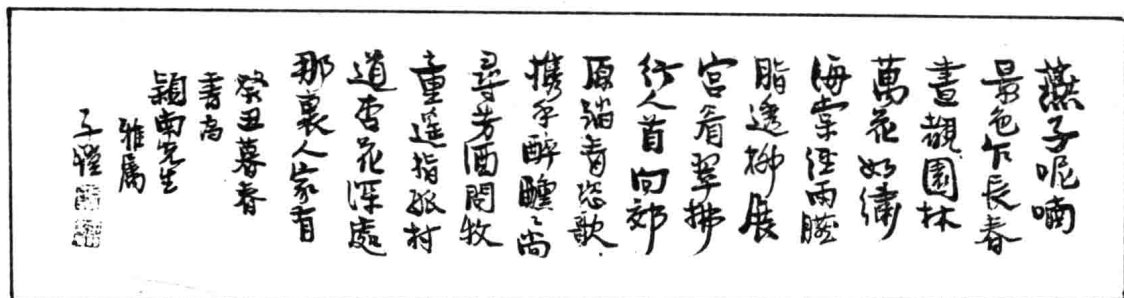 燕子呢喃
景色乍長春
晝覩園林
萬花如繡
海棠經雨臙
脂透柳展
宮眉翠拂
行人首向郊
原踏青恣歌
携手醉醺〻尚
尋芳酒問牧
童遥指孤村
道杏花深處
那裏人家有
癸丑暮春
書為
穎南先生
雅屬
子愷